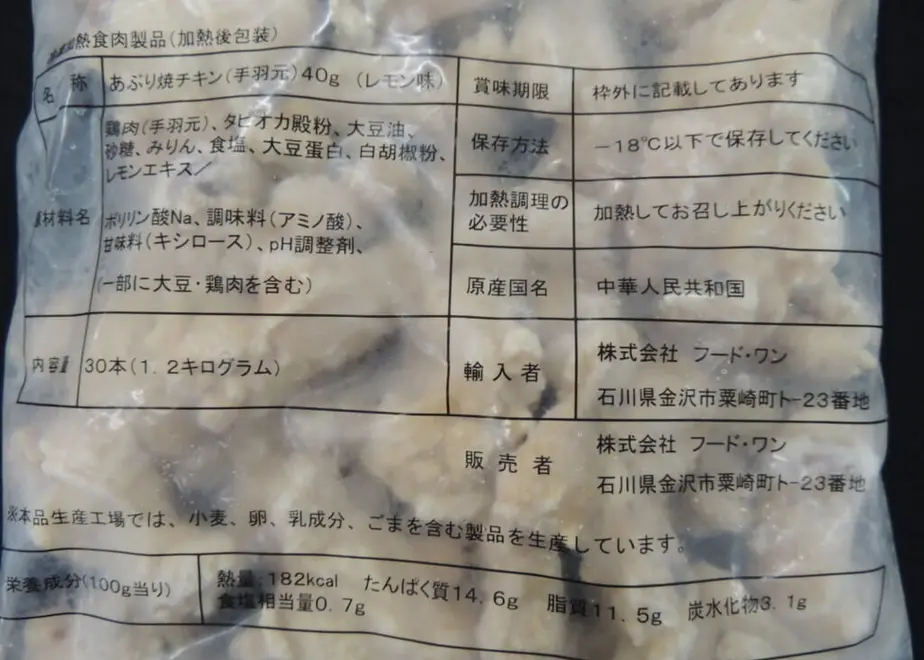 熱食肉製品(加熱後包装)
名 称 あぶり焼チキン(手羽元)40g (レモン味)
鶏肉(手羽元)、タピオカ殿粉、大豆油、
砂糖、みりん、食塩、大豆蛋白、白胡椒粉、
レモンエキス/
材料名
ポリリン酸Na、調味料(アミノ酸)、
甘味料(キシロース)、pH調整剤、
(一部に大豆・鶏肉を含む)
内容量 30本(1.2キログラム)
賞味期限 枠外に記載してあります
保存方法 -18℃以下で保存してください
加熱調理の
必要性
加熱してお召し上がりください
原産国名 中華人民共和国
輸入者
株式会社 フード・ワン
石川県金沢市粟崎町ト-23番地
販売者
株式会社 フード・ワン
石川県金沢市粟崎町ト-23番地
※本品生産工場では、小麦、卵、乳成分、ごまを含む製品を生産しています。
栄養成分(100g当り)
熱量:182kcal たんぱく質14.6g 脂質11.5g 炭水化物3.1g
食塩相当量0.7g